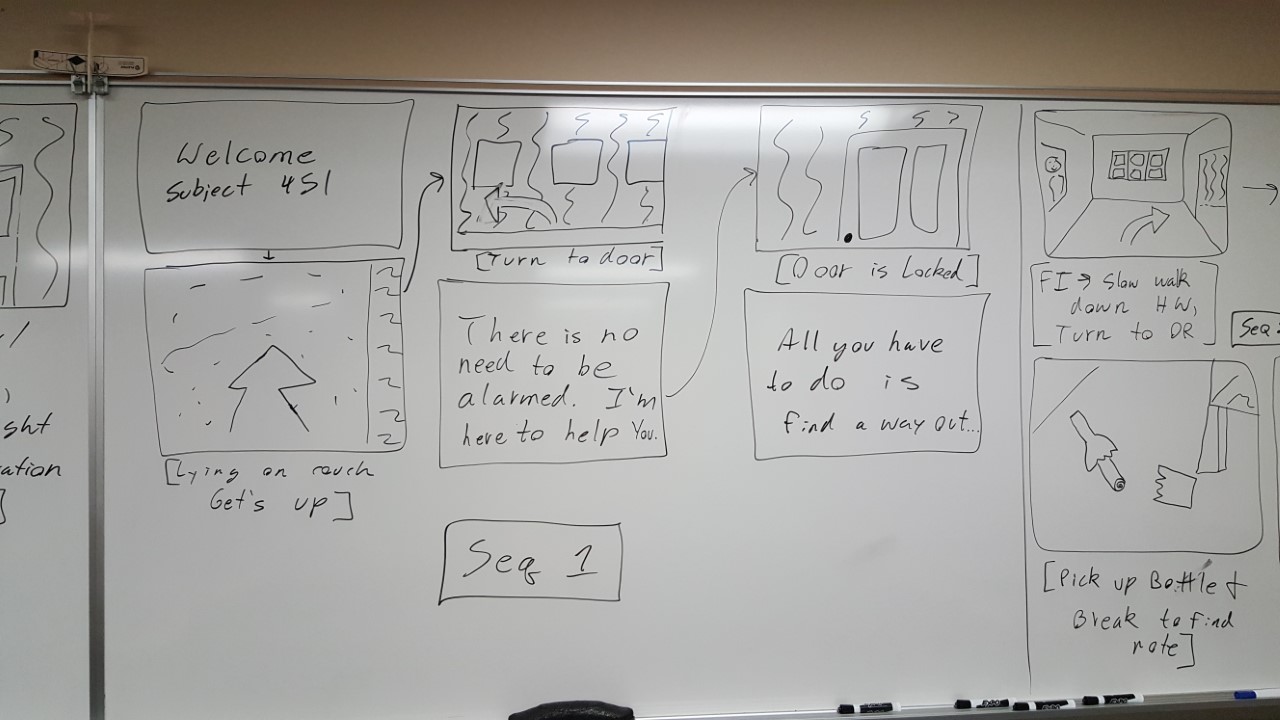 Welcome
Subject 451
[Lying on couch
Get's up]
[Turn to door]
There is no
need to be
alarmed. I'm
here to help You.
[Door is Locked]
All you have
to do is
find a way out...
Seq 1
FI → Slow walk
down HW,
Turn to DR
Seq
[Pick up Bottle +
Break to find
note]
ght
ation
]